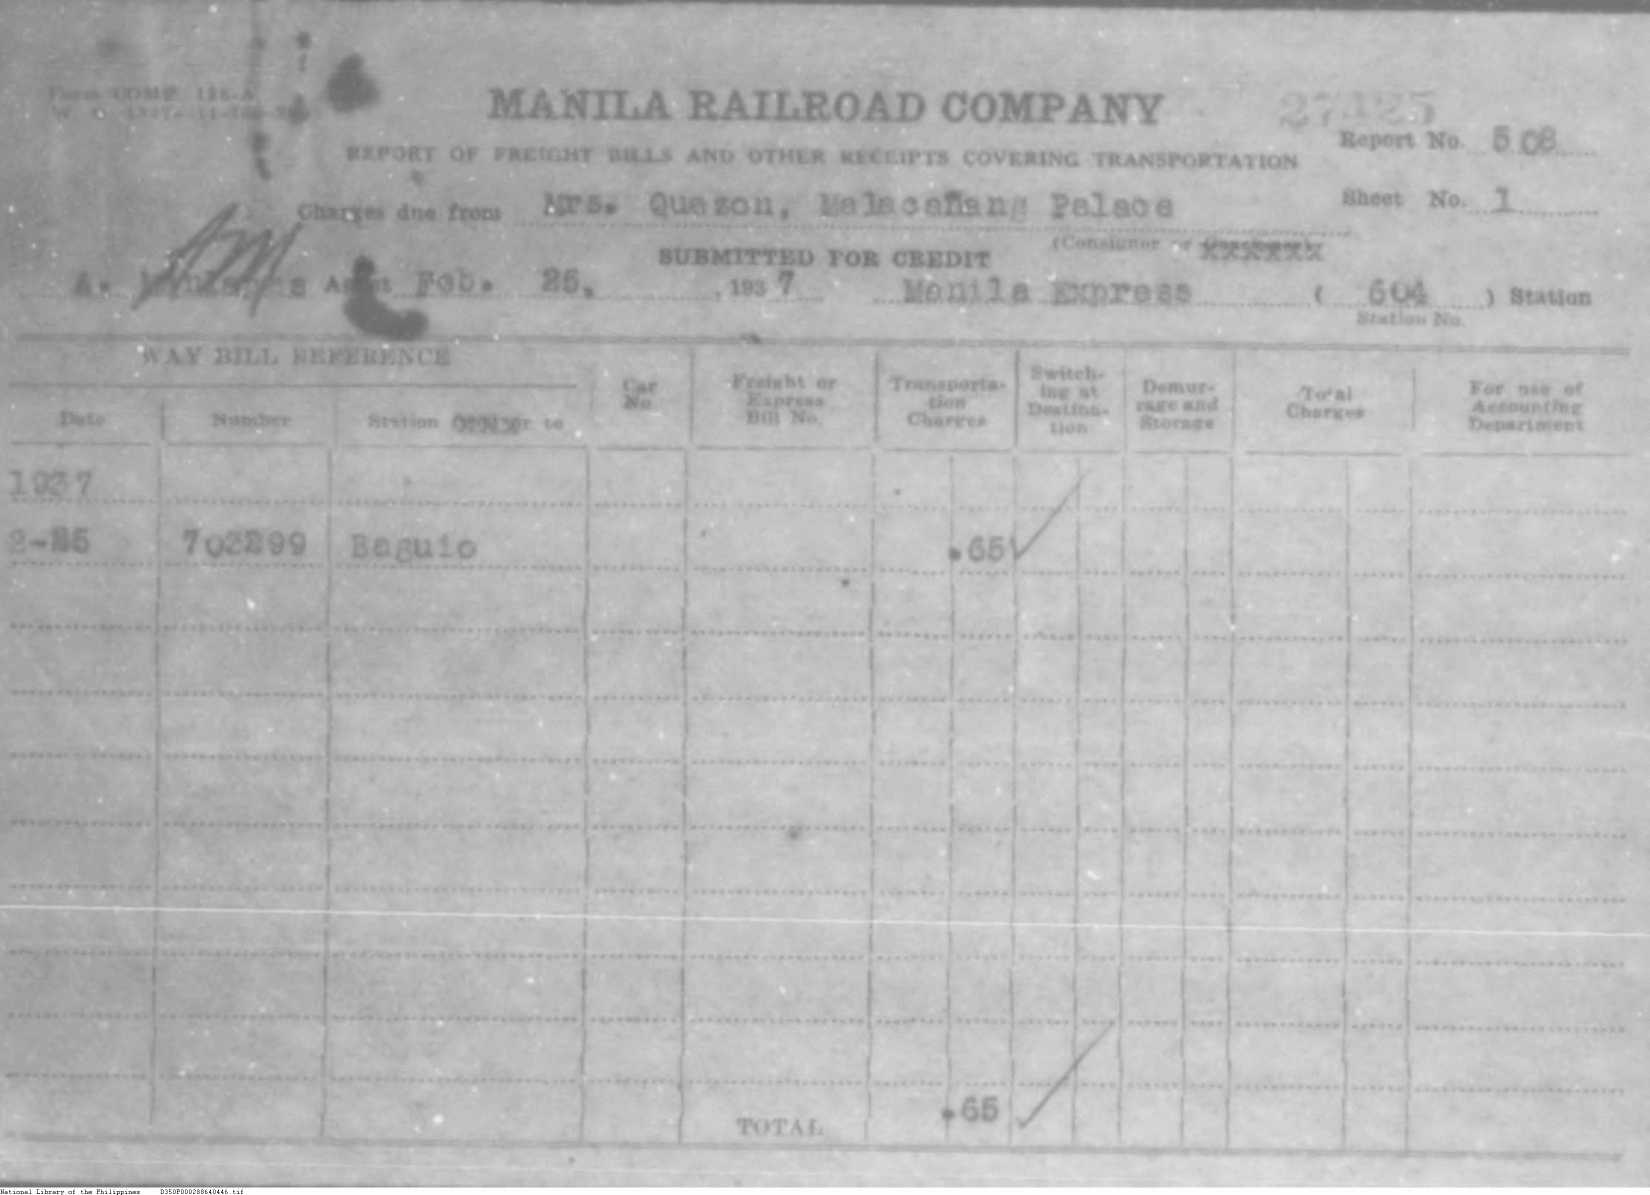 MANILA RAILROAD COMPANY
27425
Report No. 508
REPORT OF FREIGHT BILLS AND OTHER RECEIPTS COVERING TRANSPORTATION
Charges due from Mrs. Quezon, Malacañang Palace
Sheet No. 1
(Consignor or
SUBMITTED FOR CREDIT
A. Agent Feb. 25, , 1937 Manila Express ( 604 ) Station
Station No.
WAY BILL REFERENCE
Date Number Station to
Car No
Freight or Express Bill No.
Transporta-tion Charges
Switch-ing at Destina-tion
Demur-rage and Storage
Total Charges
For use of Accounting Department
1937
2-25 702299 Baguio .65
TOTAL .65
National Library of the Philippines D350P000288640446.tif